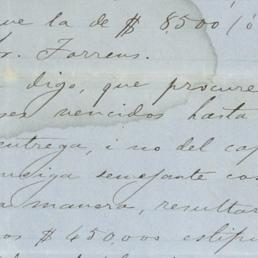 que la de $ 8500 (ó
Sr. Torrens.
digo, que procure
ses vencidos hasta
entrega, i no del cap
nsiga semejante cos
a manera, resultar
os $ 450000 estipu